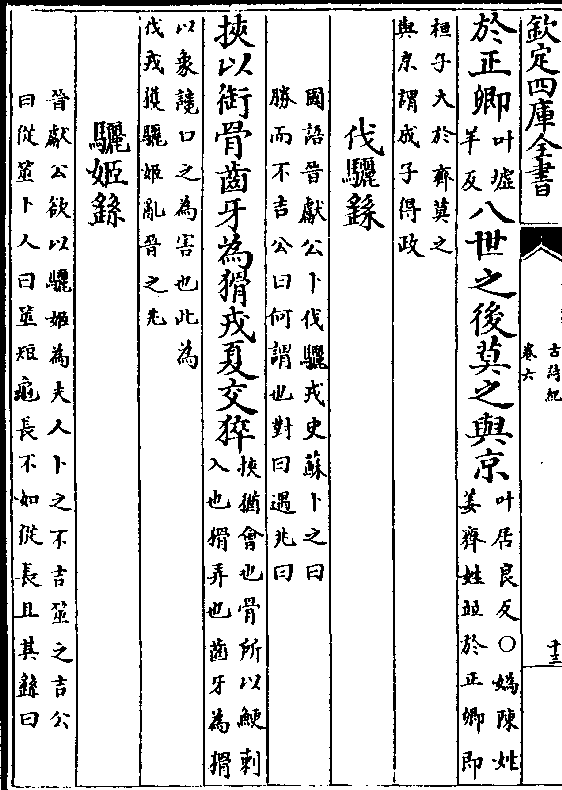 欽定四庫全書
古詩紀
卷六
十三
於正卿叶墟羊反八世之後莫之與京叶居良反○媯陳姓
姜齊姓並於正卿即
桓子大於齊莫之
與京謂成子得政
伐驪繇
國語晉獻公卜伐驪戎史蘇卜之曰
勝而不吉公曰何謂也對曰遇兆曰
挾以銜骨齒牙為猾戎夏交猝挾猶會也骨所以鯁刺
入也猾弄也齒牙為猾
以象讒口之為害也此為
伐戎獲驪姬亂晉之先
驪姬繇
晉獻公欲以驪姬為夫人卜之不吉筮之吉公
曰從筮卜人曰筮短龜長不如從長且其繇曰